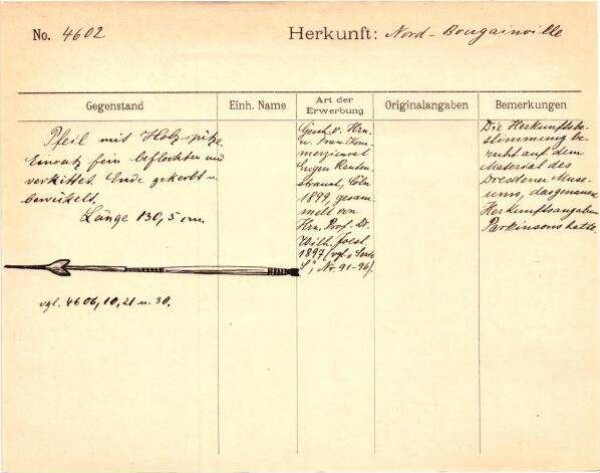 No. 4602
Herkunft: Nord-Bougainville
Gegenstand
Einh. Name
Art der
Erwerbung
Originalangaben
Bemerkungen
Pfeil mit Holzspitze.
Einsatz fein beflochten und
verkittet. Ende gekerbt u.
bewickelt.
Länge 130,5 cm.
vgl. 4606, 10, 21 u. 30.
Gesch. v. Hrn.
u. Frau Kom-
merzienrat
Eugen Rauten-
strauch, Cöln
1899, gesam-
melt von
Hrn. Prof. Dr.
Wilh. Joest
1897 (vgl.
Nr. 91-96).
Die Herkunftsbe-
stimmung be-
ruht auf dem
Material des
Dresdener Muse-
ums, das genaue
Herkunftsangaben
Parkinsons hatte.